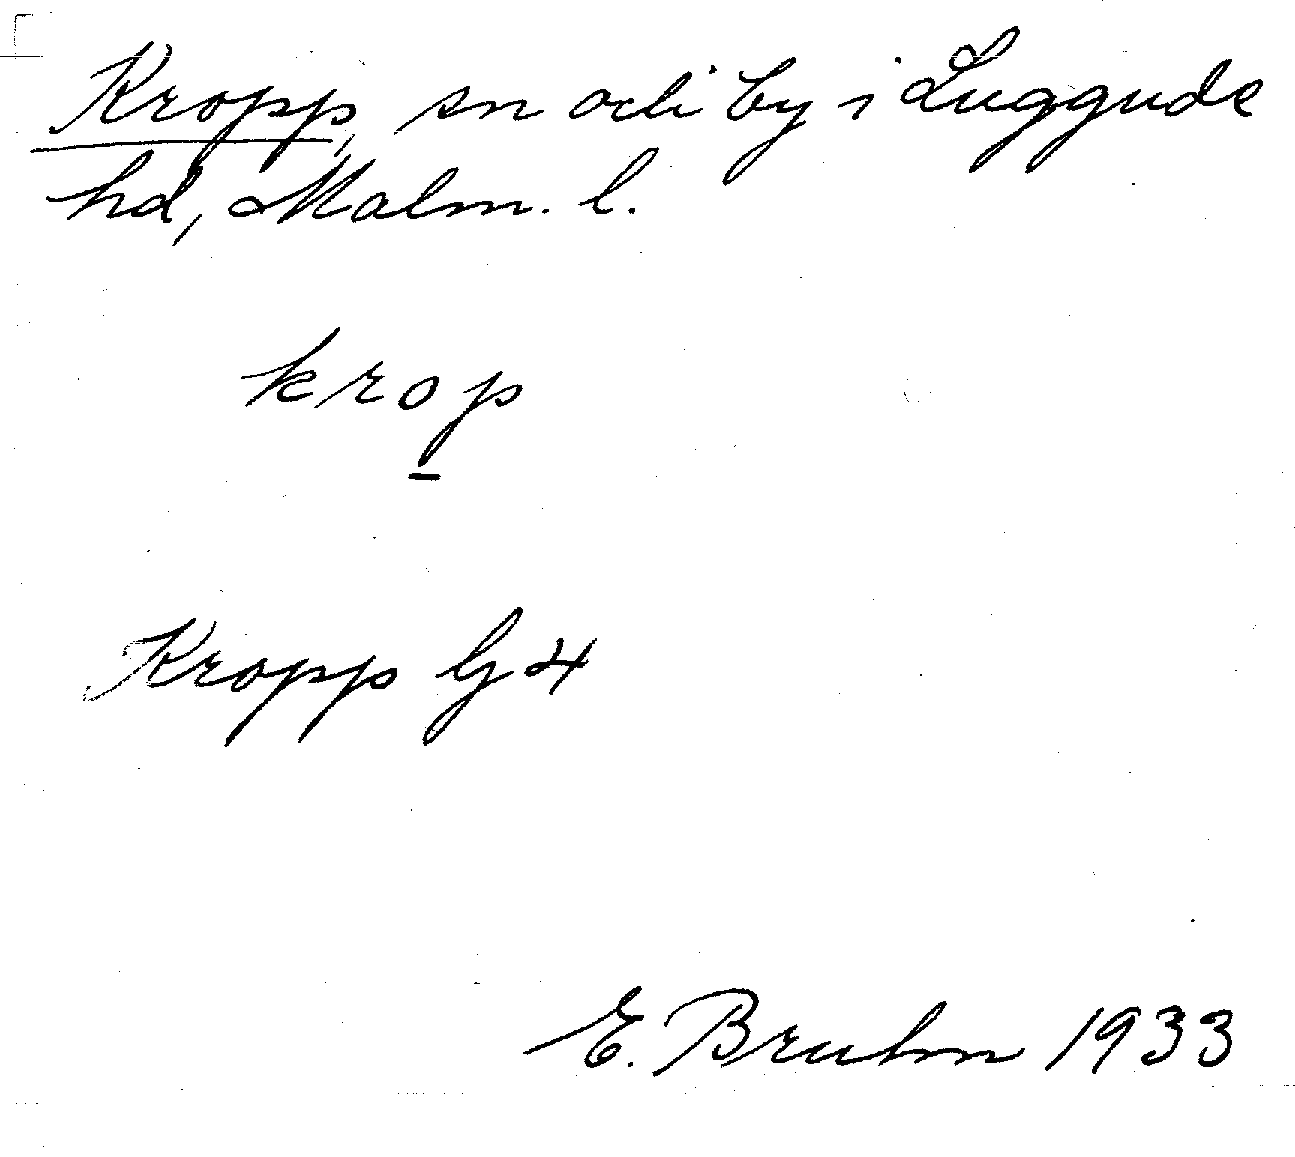 Kropp, sn och by i Luggude
hd, Malm. l.
krop
Kropp G4
E. Bruhn 1933